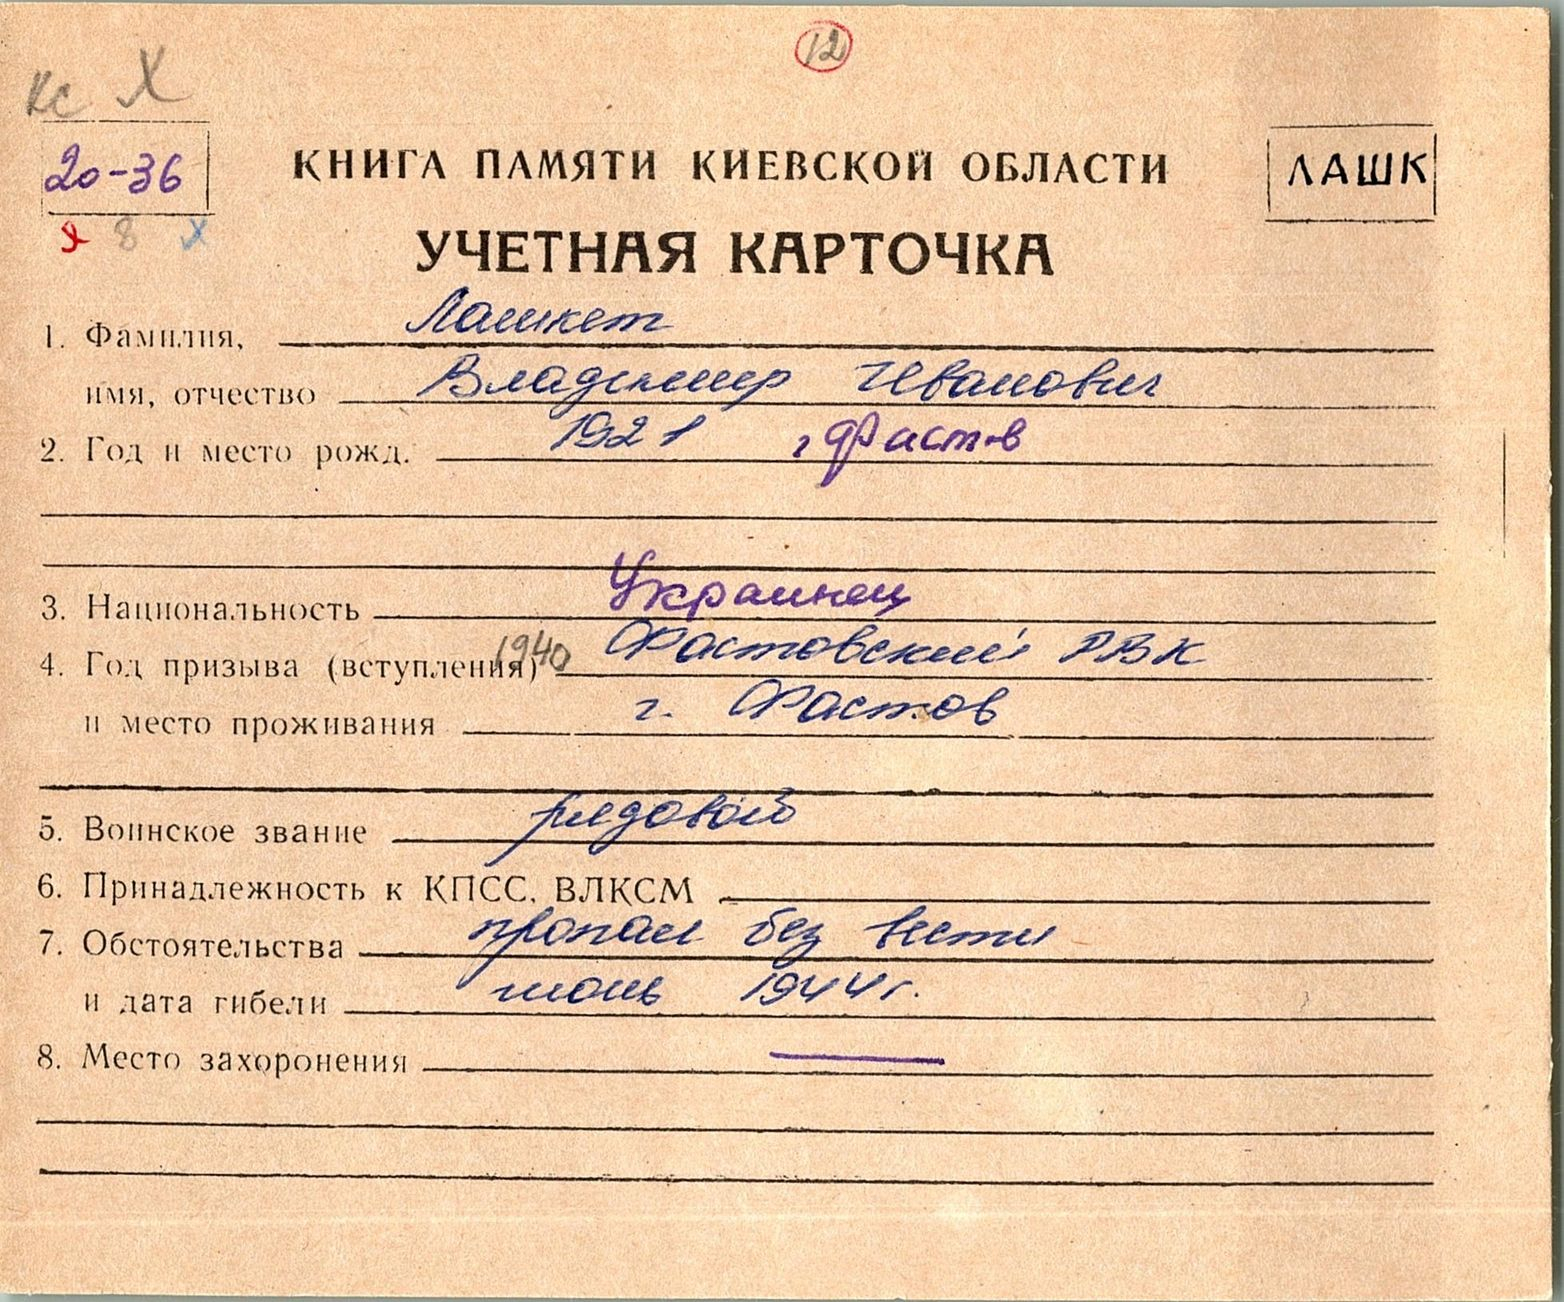 12
Кс Х
20-36
КНИГА ПАМЯТИ КИЕВСКОЙ ОБЛАСТИ
ЛАШК
8 х
УЧЕТНАЯ КАРТОЧКА
1. Фамилия, Лашкет
имя, отчество Владимир Иванович
2. Год и место рожд. 1921 г Фастов
3. Национальность Украинец
4. Год призыва (вступления) 1940 Фастовский РВК
и место проживания г. Фастов
5. Воинское звание рядовой
6. Принадлежность к КПСС, ВЛКСМ
7. Обстоятельства пропал без вести
и дата гибели июнь 1944 г.
8. Место захоронения —